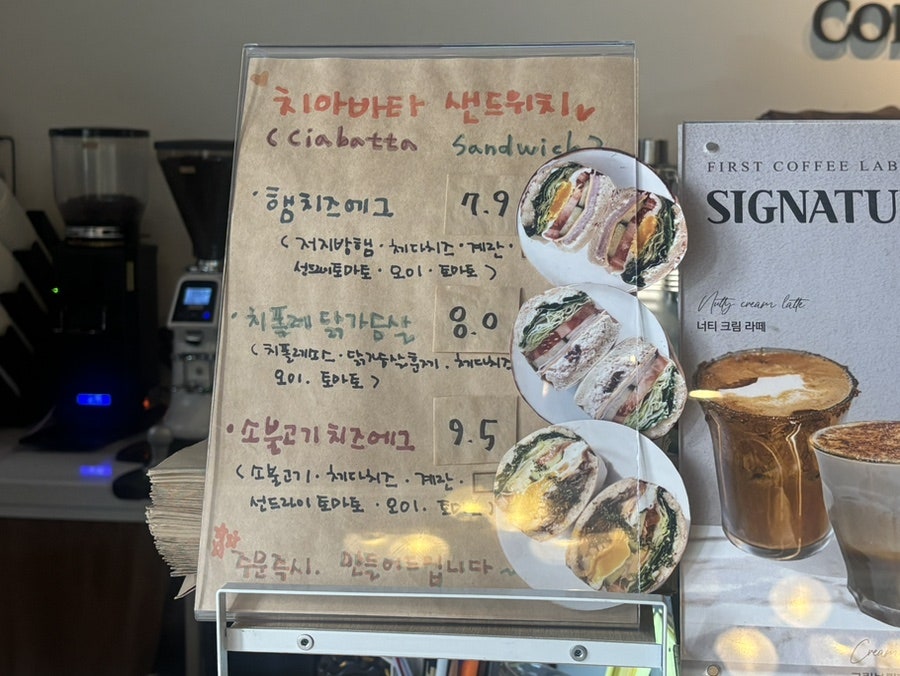 치아바타 샌드위치
(Ciabatta Sandwich)
· 햄치즈에그 7.9
(저지방햄 · 체다치즈 · 계란 ·
선드라이토마토 · 오이 · 토마토)
· 치폴레 닭가슴살 8.0
(치폴레소스 · 닭가슴살훈제 · 체다치즈
오이 · 토마토)
· 소불고기 치즈에그 9.5
(소불고기 · 체다치즈 · 계란 ·
선드라이토마토 · 오이 · 토마토)
주문즉시. 만들어드립니다~
FIRST COFFEE LAB
SIGNATU
Nutty cream latte
너티 크림 라떼
Cream